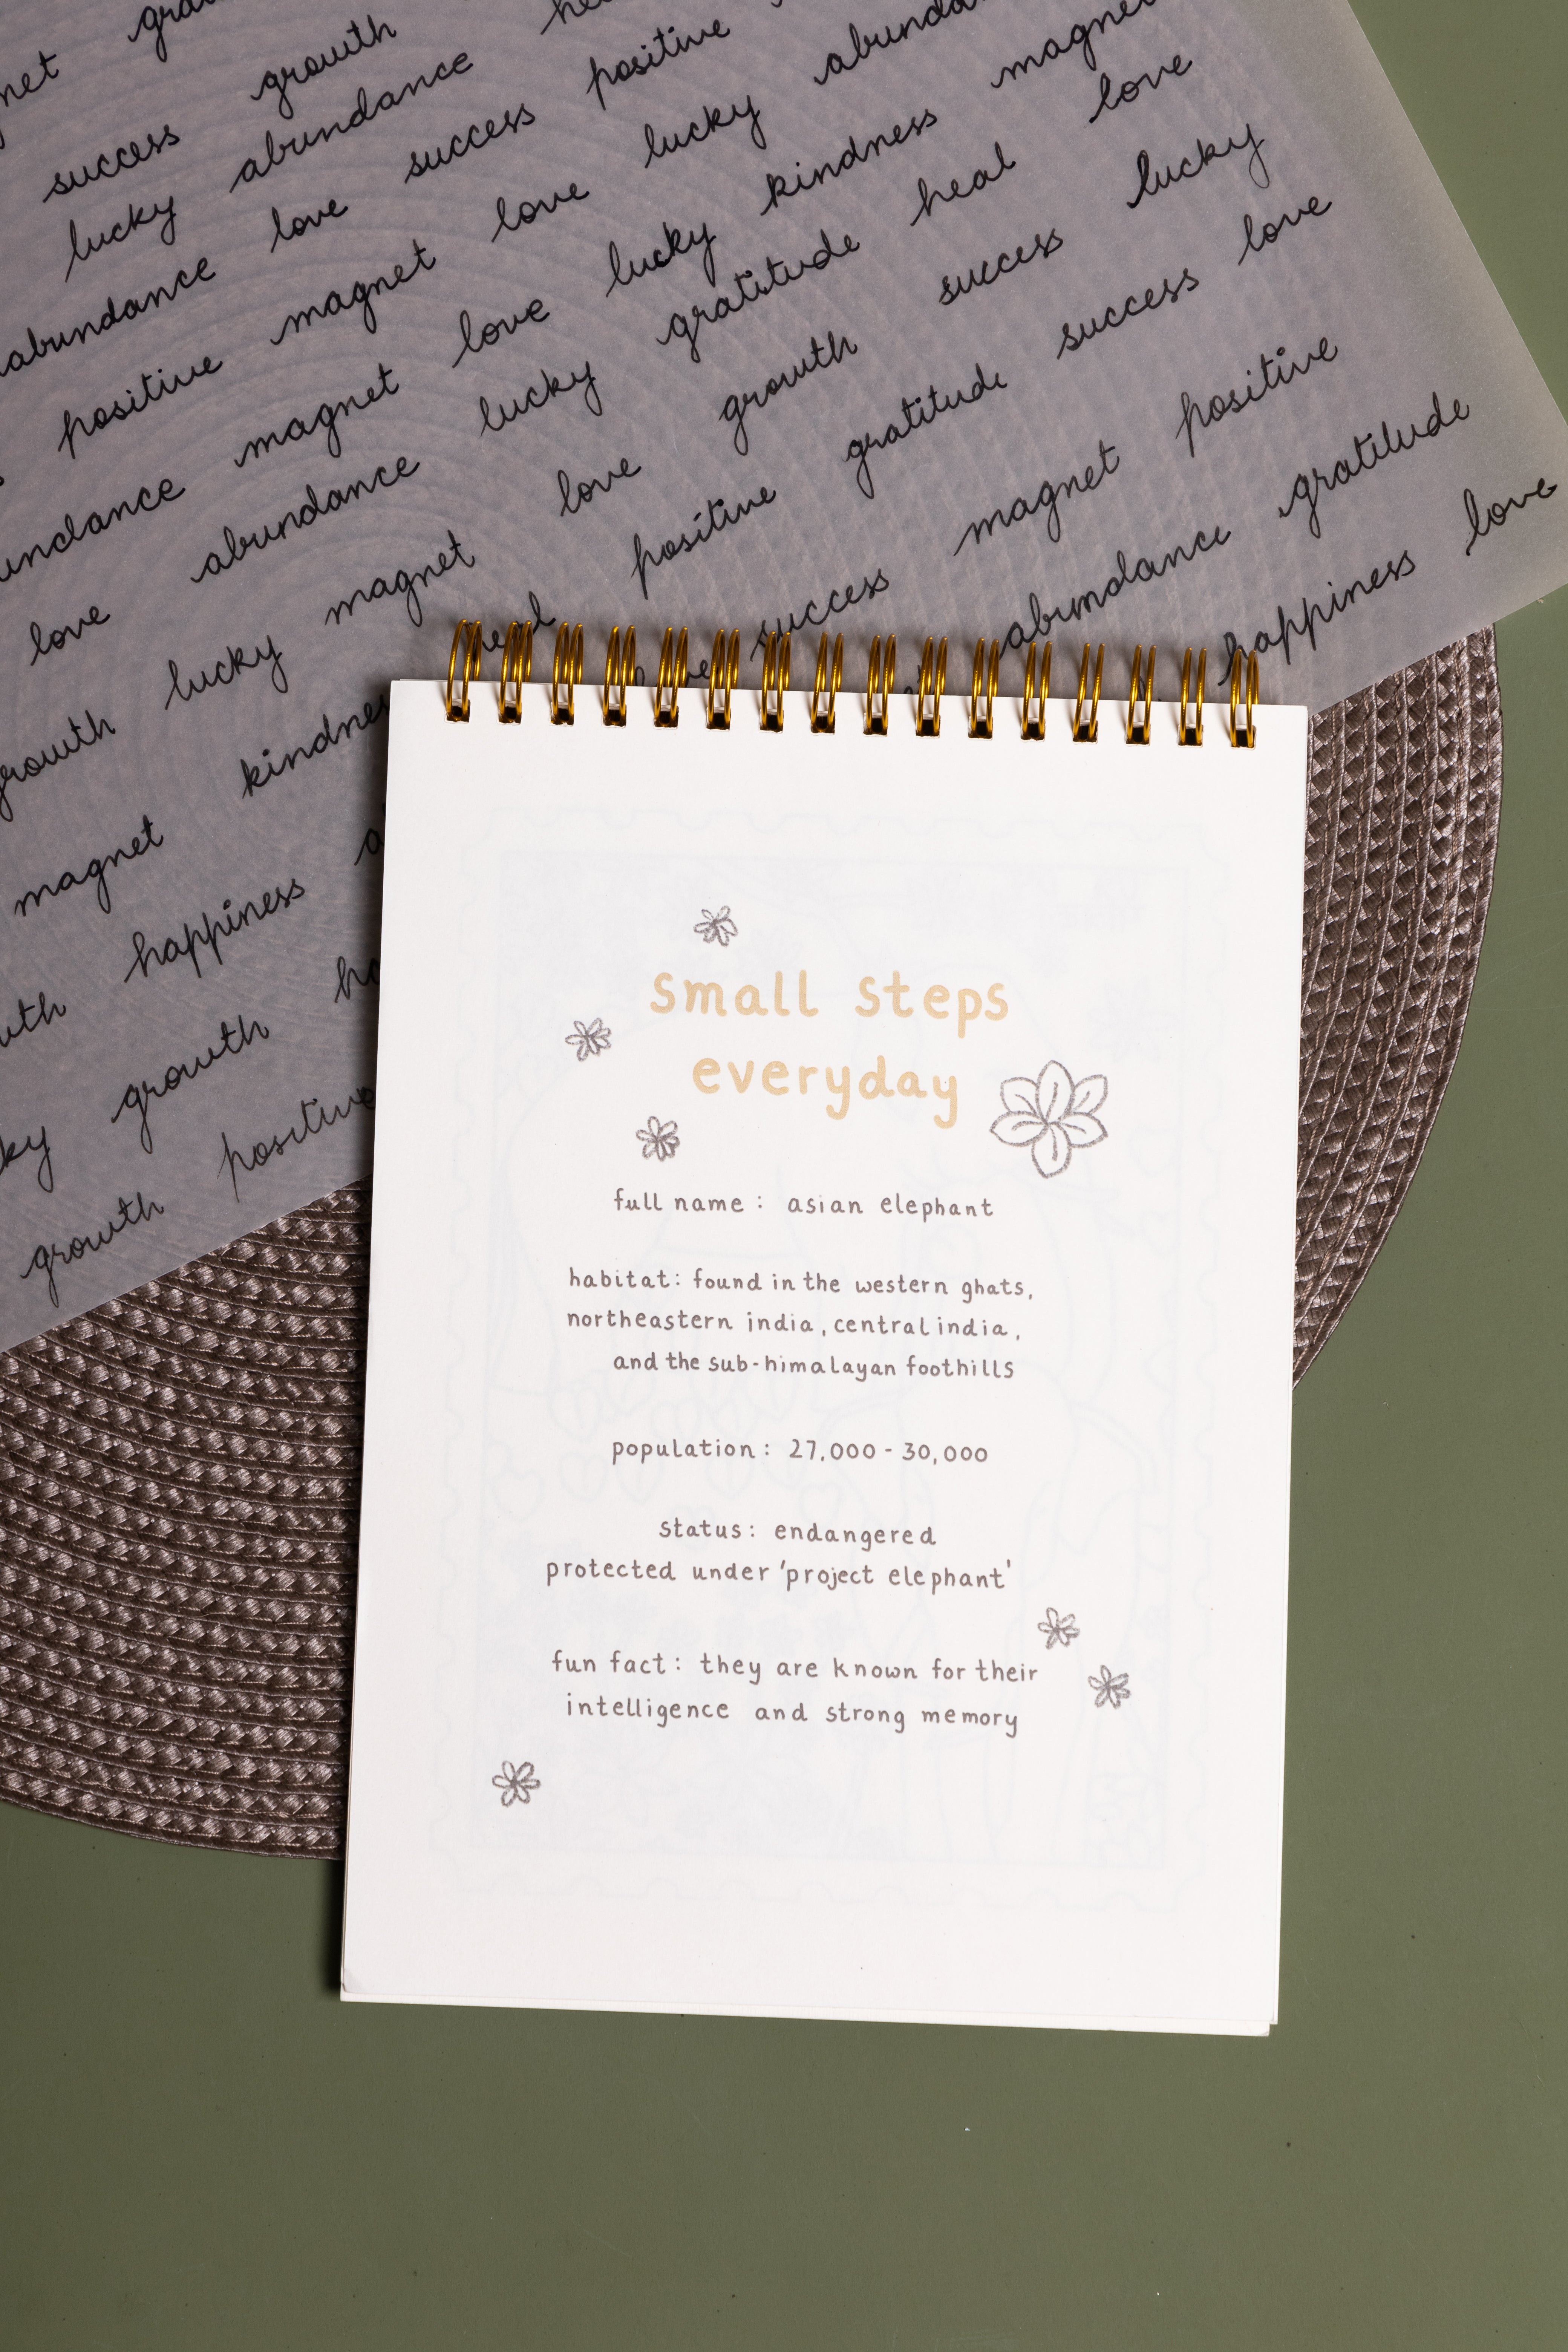 success growth
lucky abundance
abundance love success positive
positive magnet love lucky
magnet love lucky kindness magnet
love abundance lucky gratitude heal love
growth lucky magnet love growth success lucky
magnet heal positive gratitude success love
happiness success magnet positive
growth abundance gratitude
growth positive happiness love
small steps
everyday
full name : asian elephant
habitat: found in the western ghats,
northeastern india, central india,
and the sub-himalayan foothills
population: 27,000 - 30,000
status: endangered
protected under 'project elephant'
fun fact: they are known for their
intelligence and strong memory